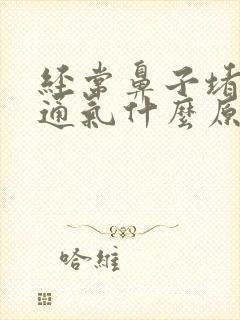 經常鼻子堵
通氣什麼原
哈維